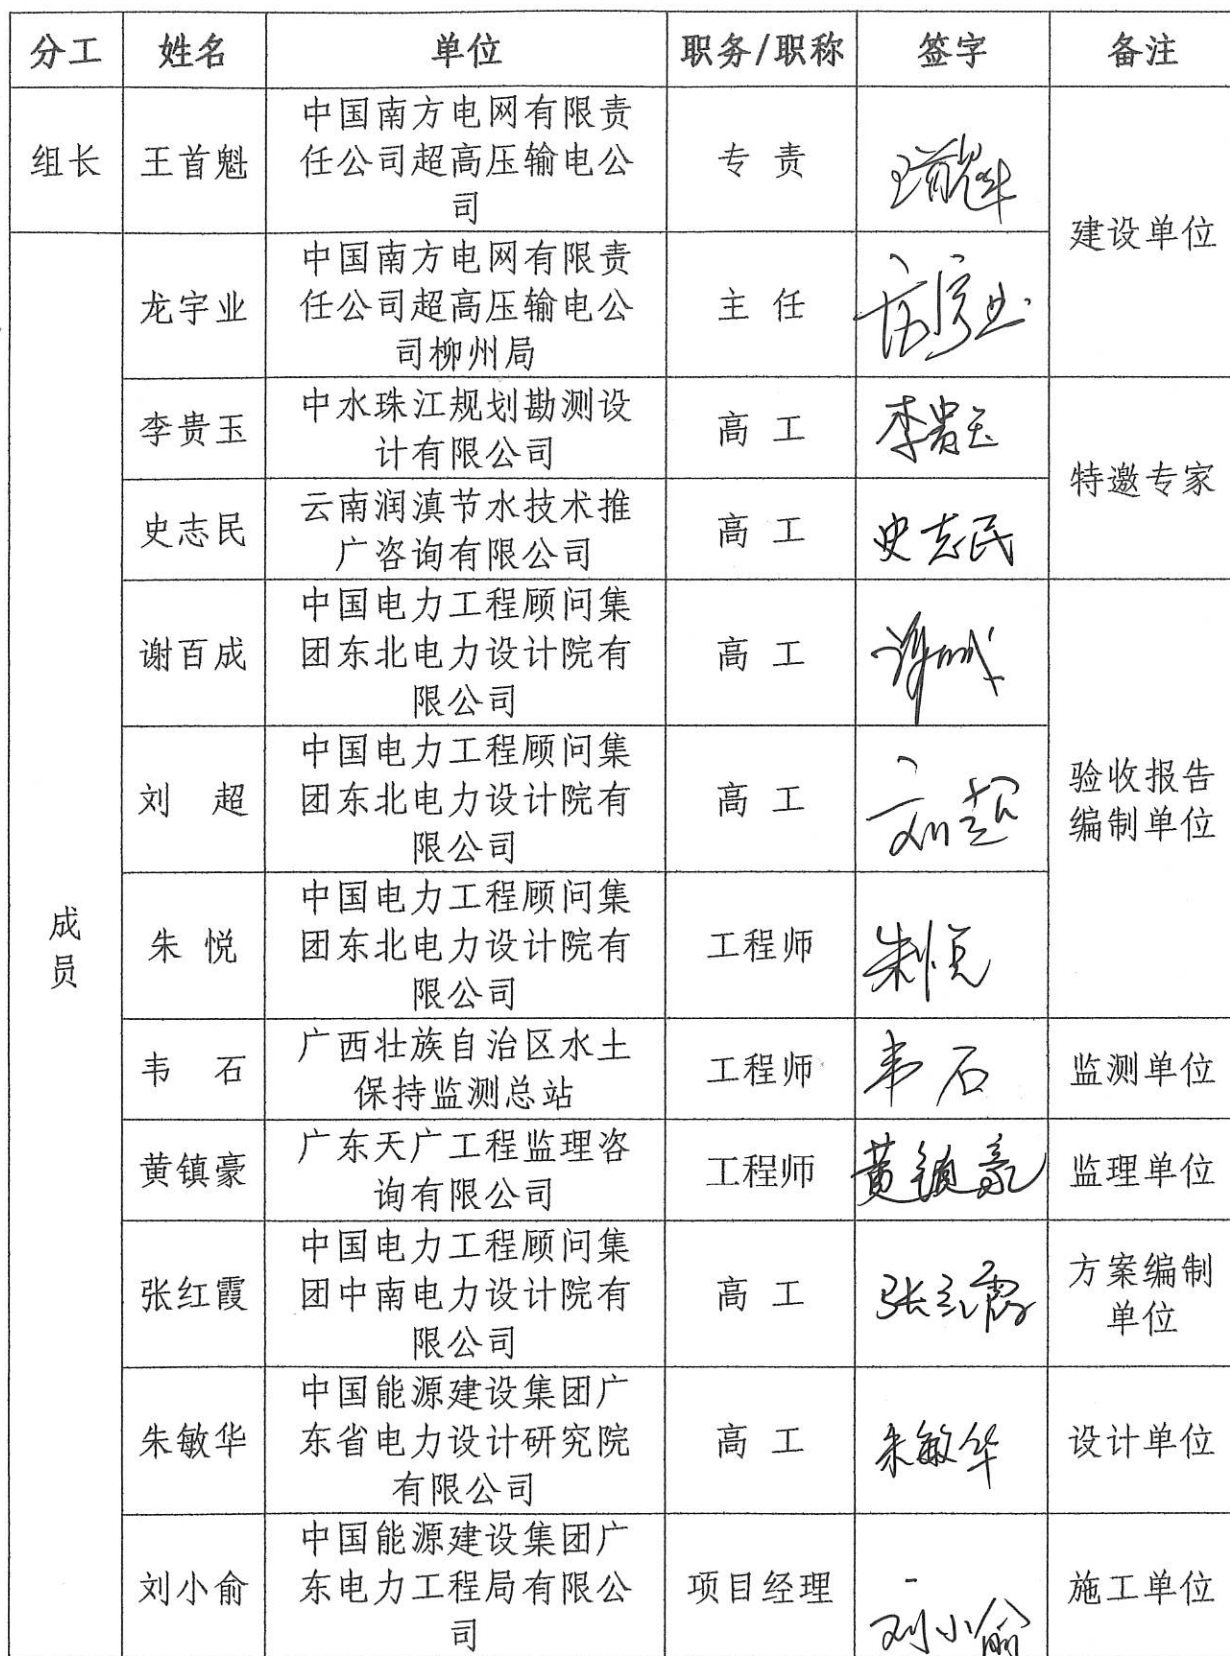 分工 姓名 单位 职务/职称 签字 备注
组长 王首魁 中国南方电网有限责
任公司超高压输电公
司 专 责 王首魁 建设单位
成
员
龙宇业 中国南方电网有限责
任公司超高压输电公
司柳州局 主 任 龙宇业
李贵玉 中水珠江规划勘测设
计有限公司 高 工 李贵玉 特邀专家
史志民 云南润滇节水技术推
广咨询有限公司 高 工 史志民
谢百成 中国电力工程顾问集
团东北电力设计院有
限公司 高 工 谢百成 验收报告
编制单位
刘 超 中国电力工程顾问集
团东北电力设计院有
限公司 高 工 刘超
朱 悦 中国电力工程顾问集
团东北电力设计院有
限公司 工程师 朱悦
韦 石 广西壮族自治区水土
保持监测总站 工程师 韦石 监测单位
黄镇豪 广东天广工程监理咨
询有限公司 工程师 黄镇豪 监理单位
张红霞 中国电力工程顾问集
团中南电力设计院有
限公司 高 工 张红霞 方案编制
单位
朱敏华 中国能源建设集团广
东省电力设计研究院
有限公司 高 工 朱敏华 设计单位
刘小俞 中国能源建设集团广
东电力工程局有限公
司 项目经理 刘小俞 施工单位